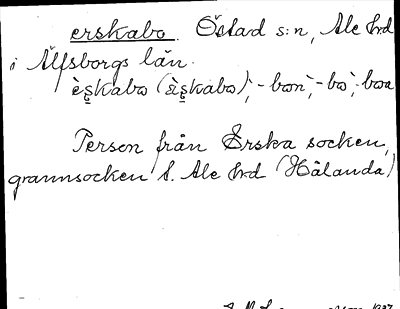 erskabo. Östad s:n, Ale hrd
i Älfsborgs län.
èşkabo (ɛ̀şkabo), -bon, -bo, -boa
Person från Erska socken,
grannsocken t. Ale hrd (Hålanda)